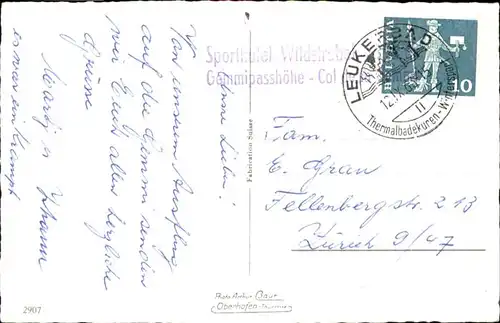 Sporthotel Wildstrubel
Gemmipasshöhe - Col
LEUKERBAD
12.IX
Thermalbadekuren-Wintersport
HELVETIA
10
Meine Lieben!
Von unserm Ausflug
auf die Gemmi senden
wir Euch allen herzliche
Grüsse
Fam.
E. Grau
Fellenbergstr. 213
Zürich 9/47
Fabrication Suisse
Photo Arthur Baur
Oberhofen
2907